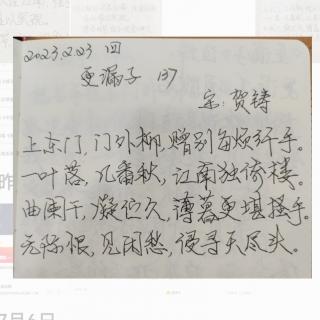 2023.2.23 四
更漏子 137
宋:贺铸
上东门,门外柳,赠别每烦纤手。
一叶落,几番秋,江南独倚楼。
曲阑干,凝伫久,薄暮更堪搔手。
无际恨,见闲愁,侵寻天尽头。
昨
7月6日